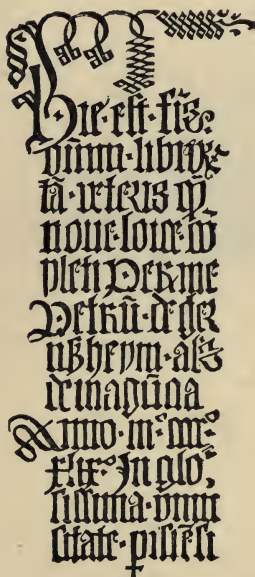 Hic·est·fīs·
omniū·libroꝝ
tā·veteris q̄
noue·loice·cō
pleti Per me
Petrū·de·ger
nßheym·als
de magūcia
Anno·m°·cccc°
xlix°·In glo,
sissima·vniu
sitate·pisiēsi